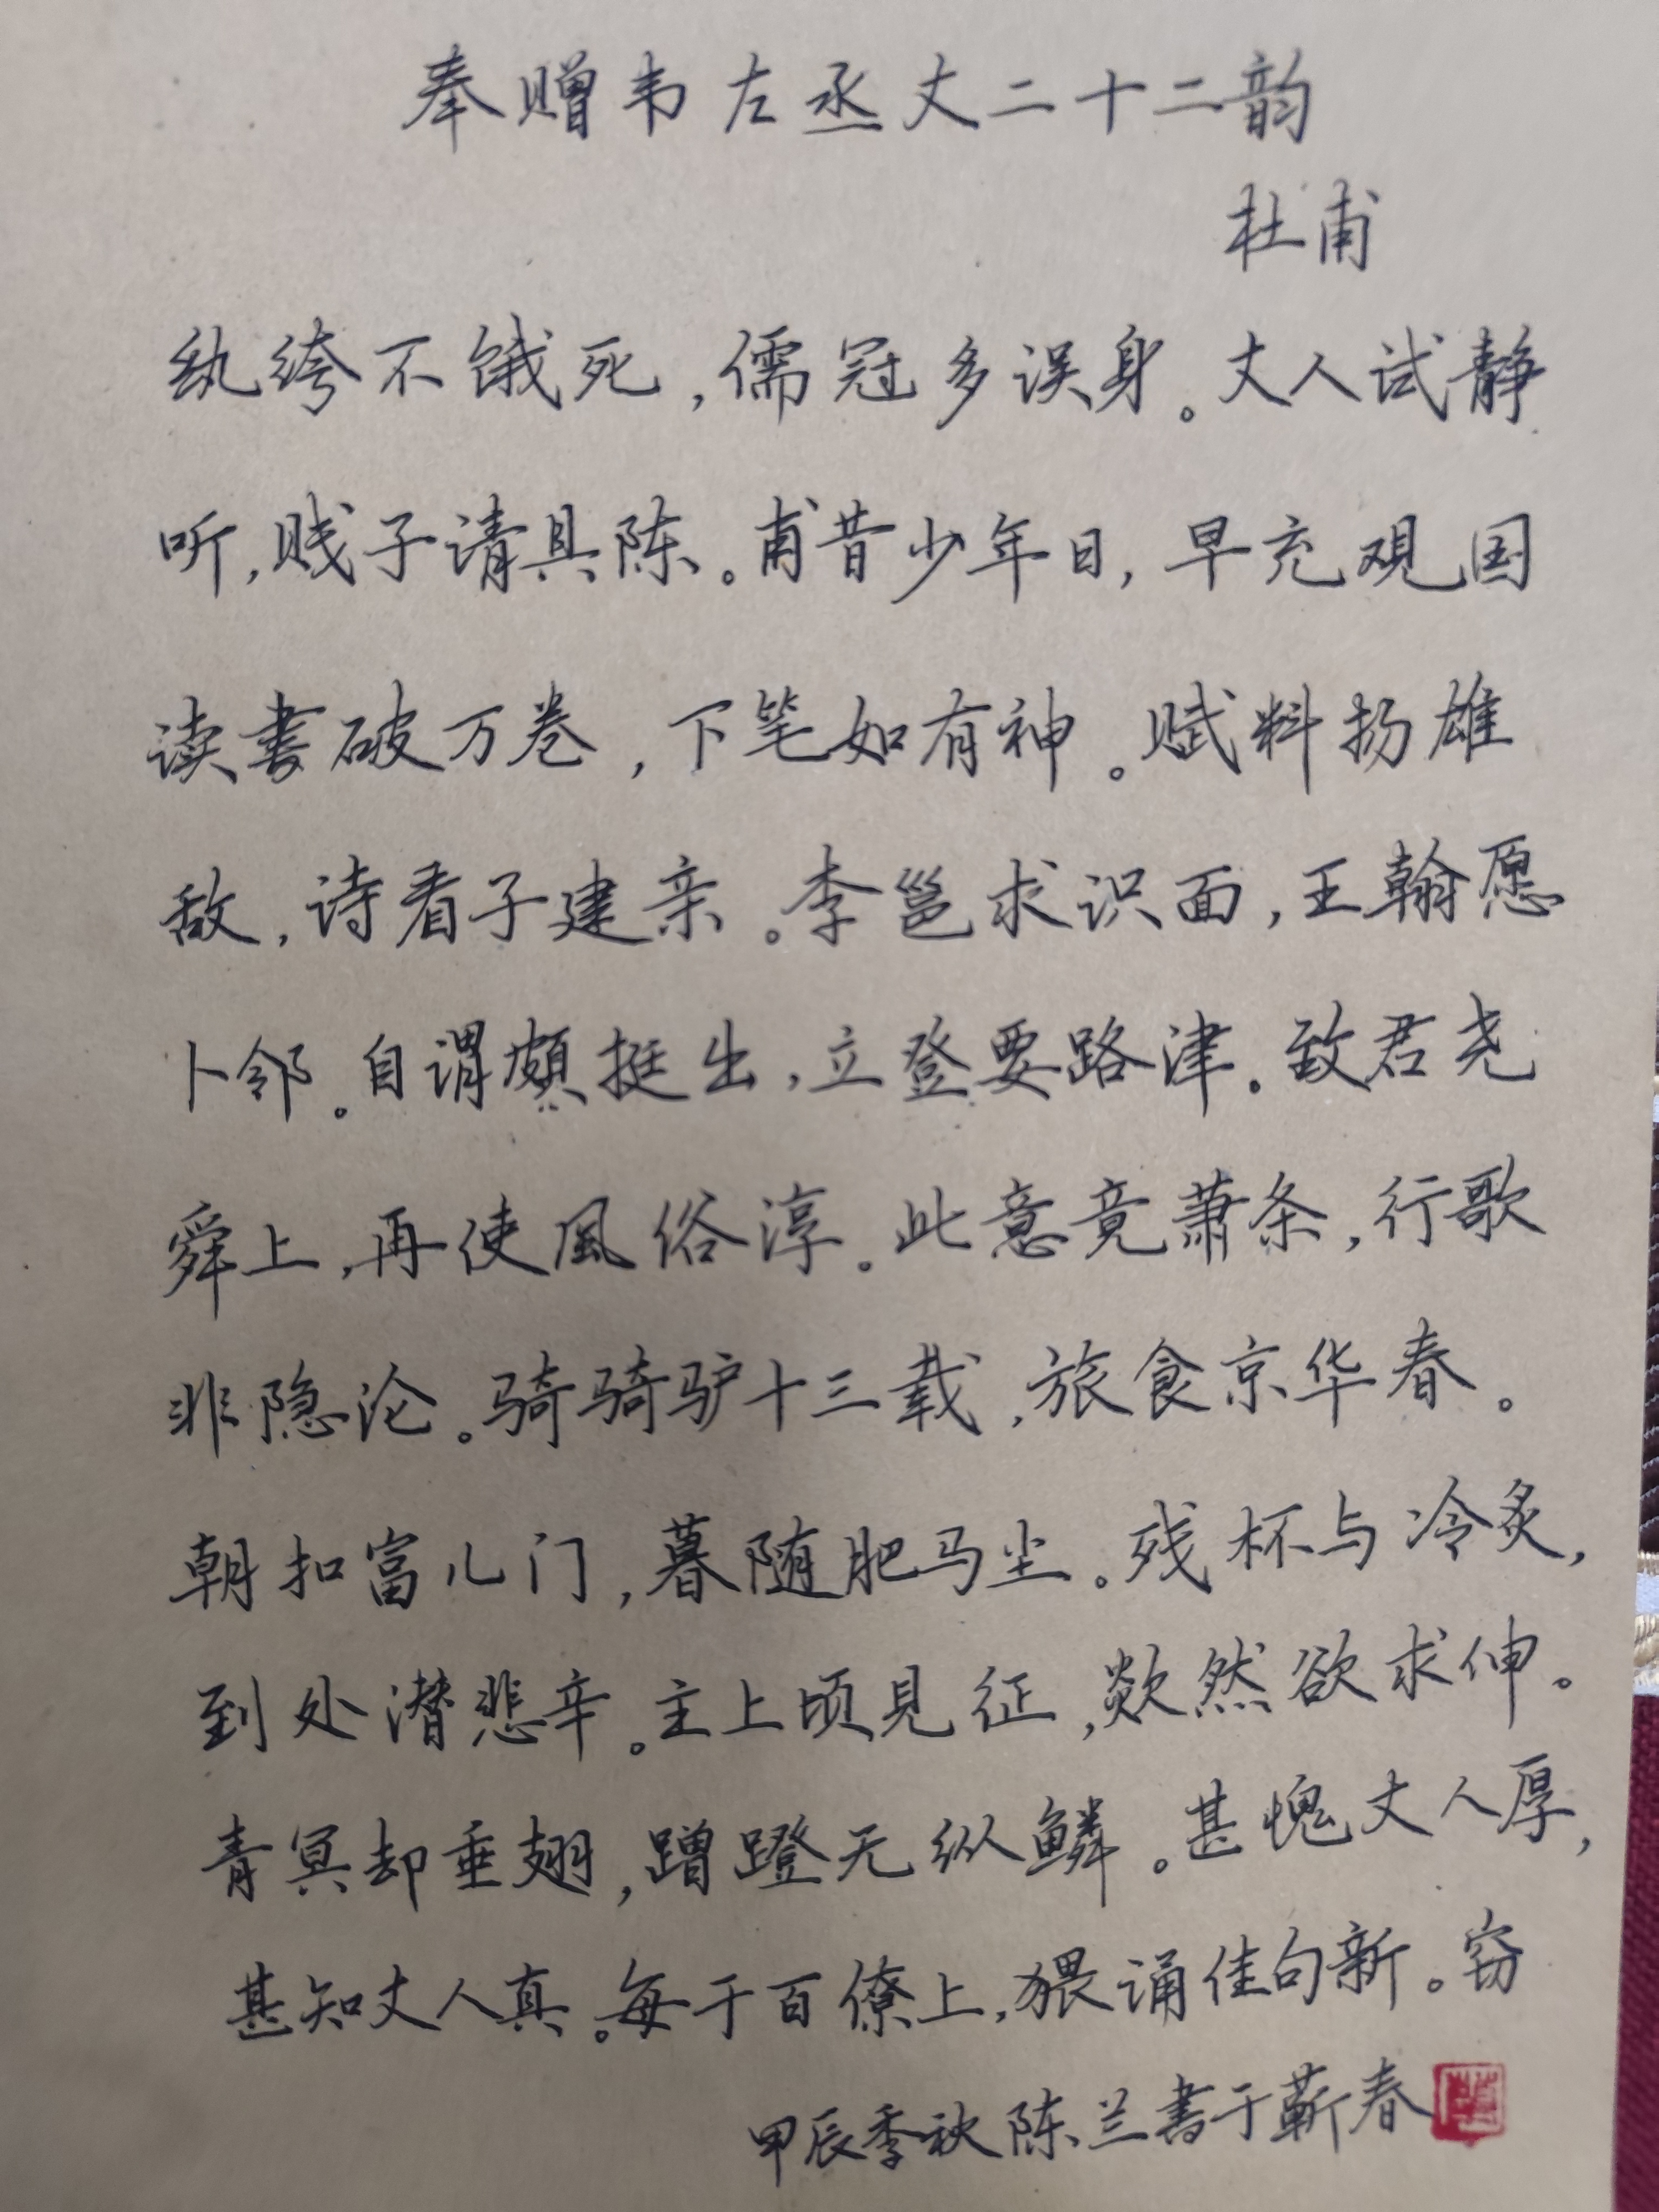 奉赠韦左丞丈二十二韵
杜甫
纨绔不饿死，儒冠多误身。丈人试静
听，贱子请具陈。甫昔少年日，早充观国
读书破万卷，下笔如有神。赋料扬雄
敌，诗看子建亲。李邕求识面，王翰愿
卜邻。自谓颇挺出，立登要路津。致君尧
舜上，再使風俗淳。此意竟萧条，行歌
非隐沦。骑骑驴十三载，旅食京华春。
朝扣富儿门，暮随肥马尘。残杯与冷炙，
到处潜悲辛。主上顷见征，欻然欲求伸。
青冥却垂翅，蹭蹬无纵鳞。甚愧丈人厚，
甚知丈人真。每于百僚上，猥诵佳句新。窃
甲辰季秋陈兰書于蕲春